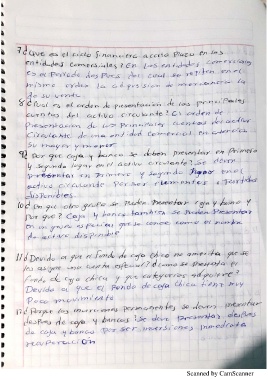 7.- ¿Que es el ciclo financiero a corto plazo en las
entidades comerciales? En las entidades comerciales
es el periodo de tiempo del cual se repiten en el
mismo orden la adquisicion de mercancia la
8.- ¿Cual es el orden de presentacion de las principales
cuentas del activo circulante? El orden de
presentacion de las principales cuentas del activo
circulante de una entidad comercial en atencion
su mayor y menor
9.- ¿Por que caja y bancos se deben presentar en primero
y segundo lugar en el activo circulante? Se deben
presentar en primero y segundo lugar en el
activo circulante por ser
disponibles
10.- ¿En que otro grafio se pueden presentar caja y bancos y
por que? Caja y bancos tambien se pueden presentar
en un grupo especial que se conoce como el nombre
de activo disponible
11.- ¿Devido a que el fondo de caja chica no amerita que se
les asigne una cuenta especial? ¿como se presenta el
fond. de caja chica y que categorias adquiere?
Devido a que el fondo de caja chica tiene muy
poco movimiento
12.- ¿Porque las inversiones permanentes se deven presentar
despues de caja y bancos? Se deve presentar despues
de caja y bancos por ser inversiones inmediata
recuperación
Scanned by CamScanner